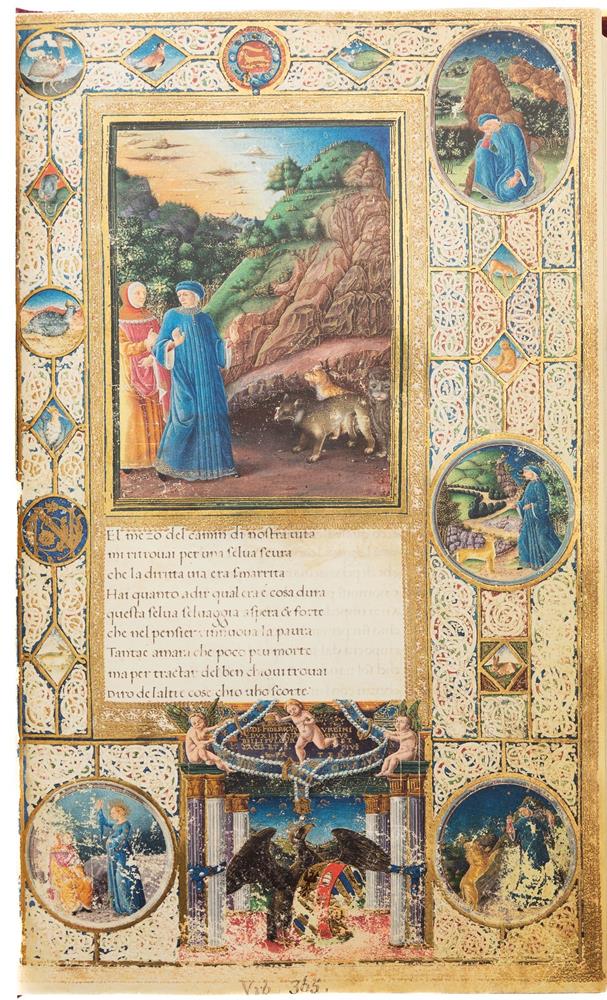 El mezo del camin di nostra uita
mi ritrouai per una selua scura
che la diritta uia era smarrita
Hai quanto adir qual era è cosa dura
questa selua seluaggia aspera & forte
che nel pensier rinuoua la paura
Tantae amara che poco piu morte
ma per tractar del ben chioui trouai
Diro delaltre cose chio uho scorte
Vrb 365.